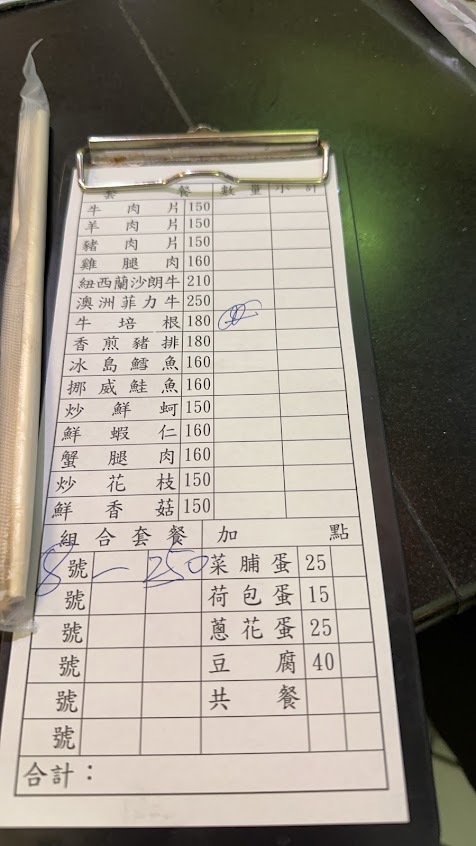 套餐 數量 小計
牛肉片 150
羊肉片 150
豬肉片 150
雞腿肉 160
紐西蘭沙朗牛 210
澳洲菲力牛 250
牛培根 180
香煎豬排 180
冰島鱈魚 160
挪威鮭魚 160
炒鮮蚵 150
鮮蝦仁 160
蟹腿肉 160
炒花枝 150
鮮香菇 150
組合套餐 加點
8號 一 250 菜脯蛋 25
號 荷包蛋 15
號 蔥花蛋 25
號 豆腐 40
號 共餐
號
合計：